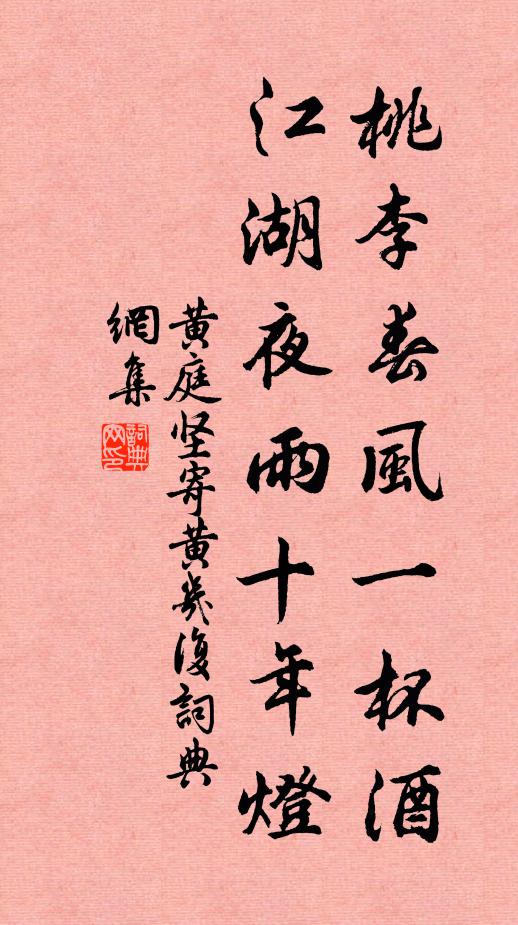 桃李春風一杯酒
江湖夜雨十年燈
黄庭坚寄黄幾復詞典
網集
詞典
网印